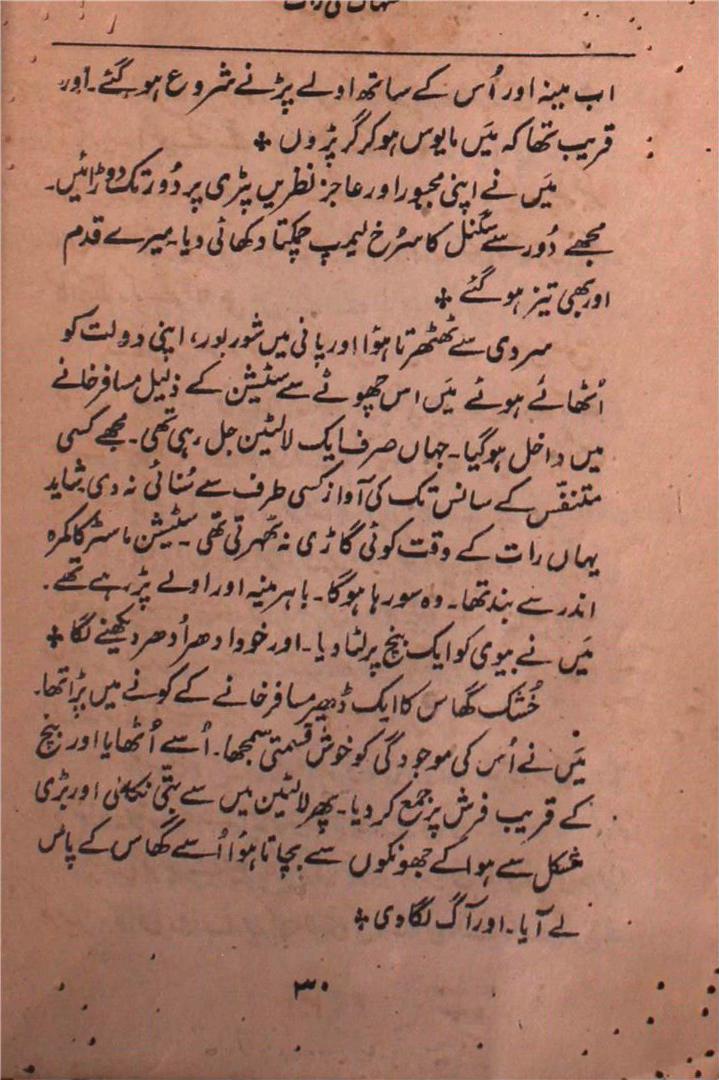 کی رات
اب مینہ اور اُس کے ساتھ اولے پڑنے شروع ہو گئے۔ اور
قریب تھا کہ مَیں مایوس ہو کر گر پڑوں ✤
مَیں نے اپنی مجبور اور عاجز نظریں پٹری پر دُور تک دوڑائیں۔
مجھے دُور سے سگنل کا سُرخ لیمپ چمکتا دکھائی دیا۔ میرے قدم
اور بھی تیز ہو گئے ✤
سردی سے ٹھٹھرتا ہؤا اور پانی میں شور بور، اپنی دولت کو
اُٹھائے ہوئے مَیں اس چھوٹے سے سٹیشن کے ذلیل مسافر خانے
میں داخل ہو گیا۔ جہاں صرف ایک لالٹین جل رہی تھی۔ مجھے کسی
متنفّس کے سانس تک کی آواز کسی طرف سے سُنائی نہ دی۔ شاید
یہاں رات کے وقت کوئی گاڑی نہ ٹھہرتی تھی۔ سٹیشن ماسٹر کا کمرہ
اندر سے بند تھا۔ وہ سو رہا ہوگا۔ باہر مینہ اور اولے پڑ رہے تھے۔
مَیں نے بیوی کو ایک بنچ پر لٹا دیا۔ اور خود ادھر اُدھر دیکھنے لگا ✤
خُشک گھاس کا ایک ڈھیر مسافر خانے کے کونے میں پڑا تھا۔
مَیں نے اُس کی موجودگی کو خوش قسمتی سمجھا۔ اُسے اُٹھایا اور بنچ
کے قریب فرش پر جمع کر دیا۔ پھر لالٹین میں سے بتّی نکالی اور بڑی
مشکل سے ہوا کے جھونکوں سے بچاتا ہؤا اُسے گھاس کے پاس
لے آیا۔ اور آگ لگا دی ✤
۳۰